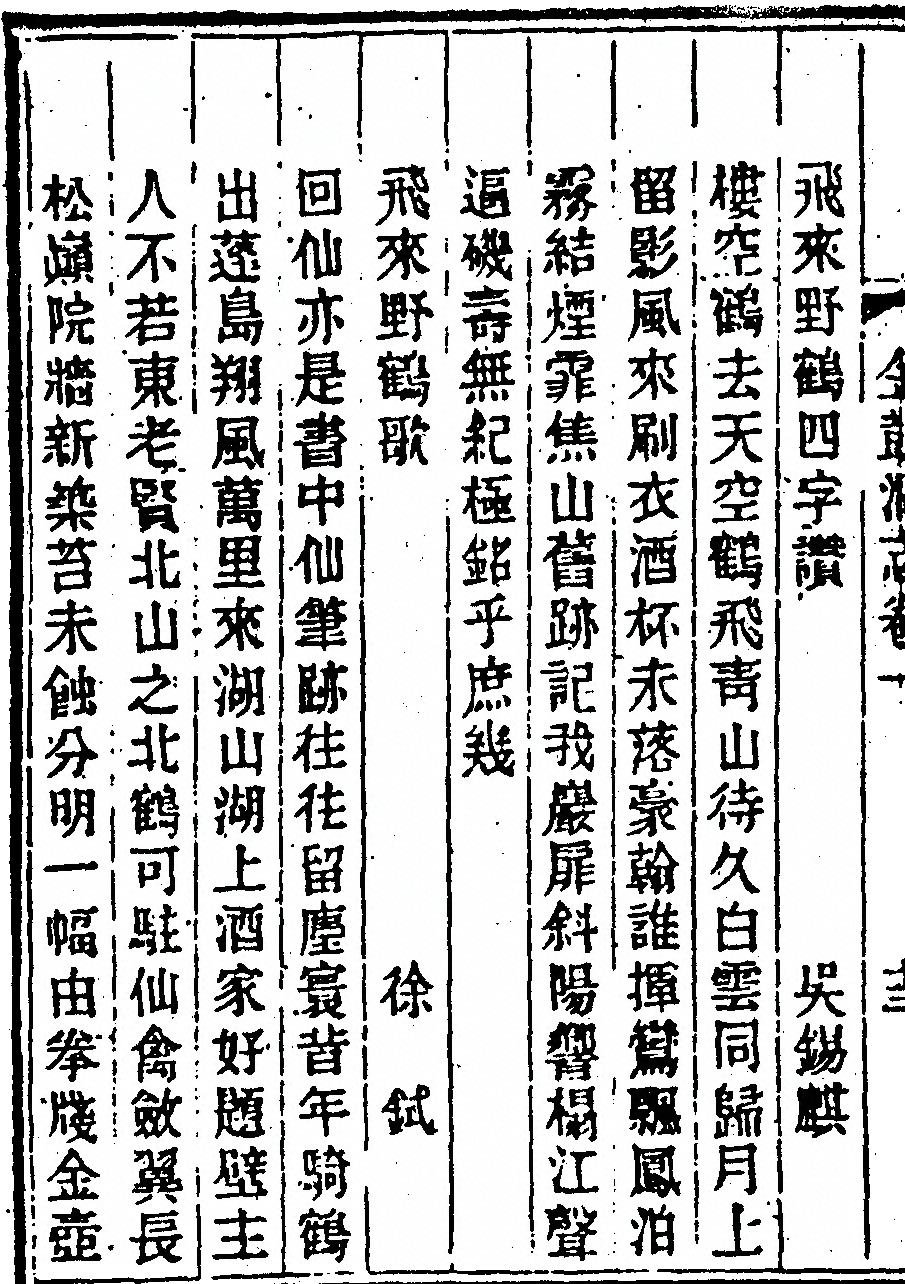 金鼓洞志卷十
飛來野鶴四字讚 吳錫麒
樓空鶴去天空鶴飛靑山待久白雲同歸月上
留影風來刷衣酒杯未落豪翰誰揮鸞飄鳳泊
霧結煙霏焦山舊跡記我巖扉斜陽響榻江聲
逼磯壽無紀極銘乎庶幾
飛來野鶴歌 徐 鉽
回仙亦是書中仙筆跡往往留塵寰昔年騎鶴
出蓬島翔風萬里來湖山湖上酒家好題壁主
人不若東老賢北山之北鶴可駐仙禽斂翼長
松巔院牆新築苔未蝕分明一幅由拳牋金壺